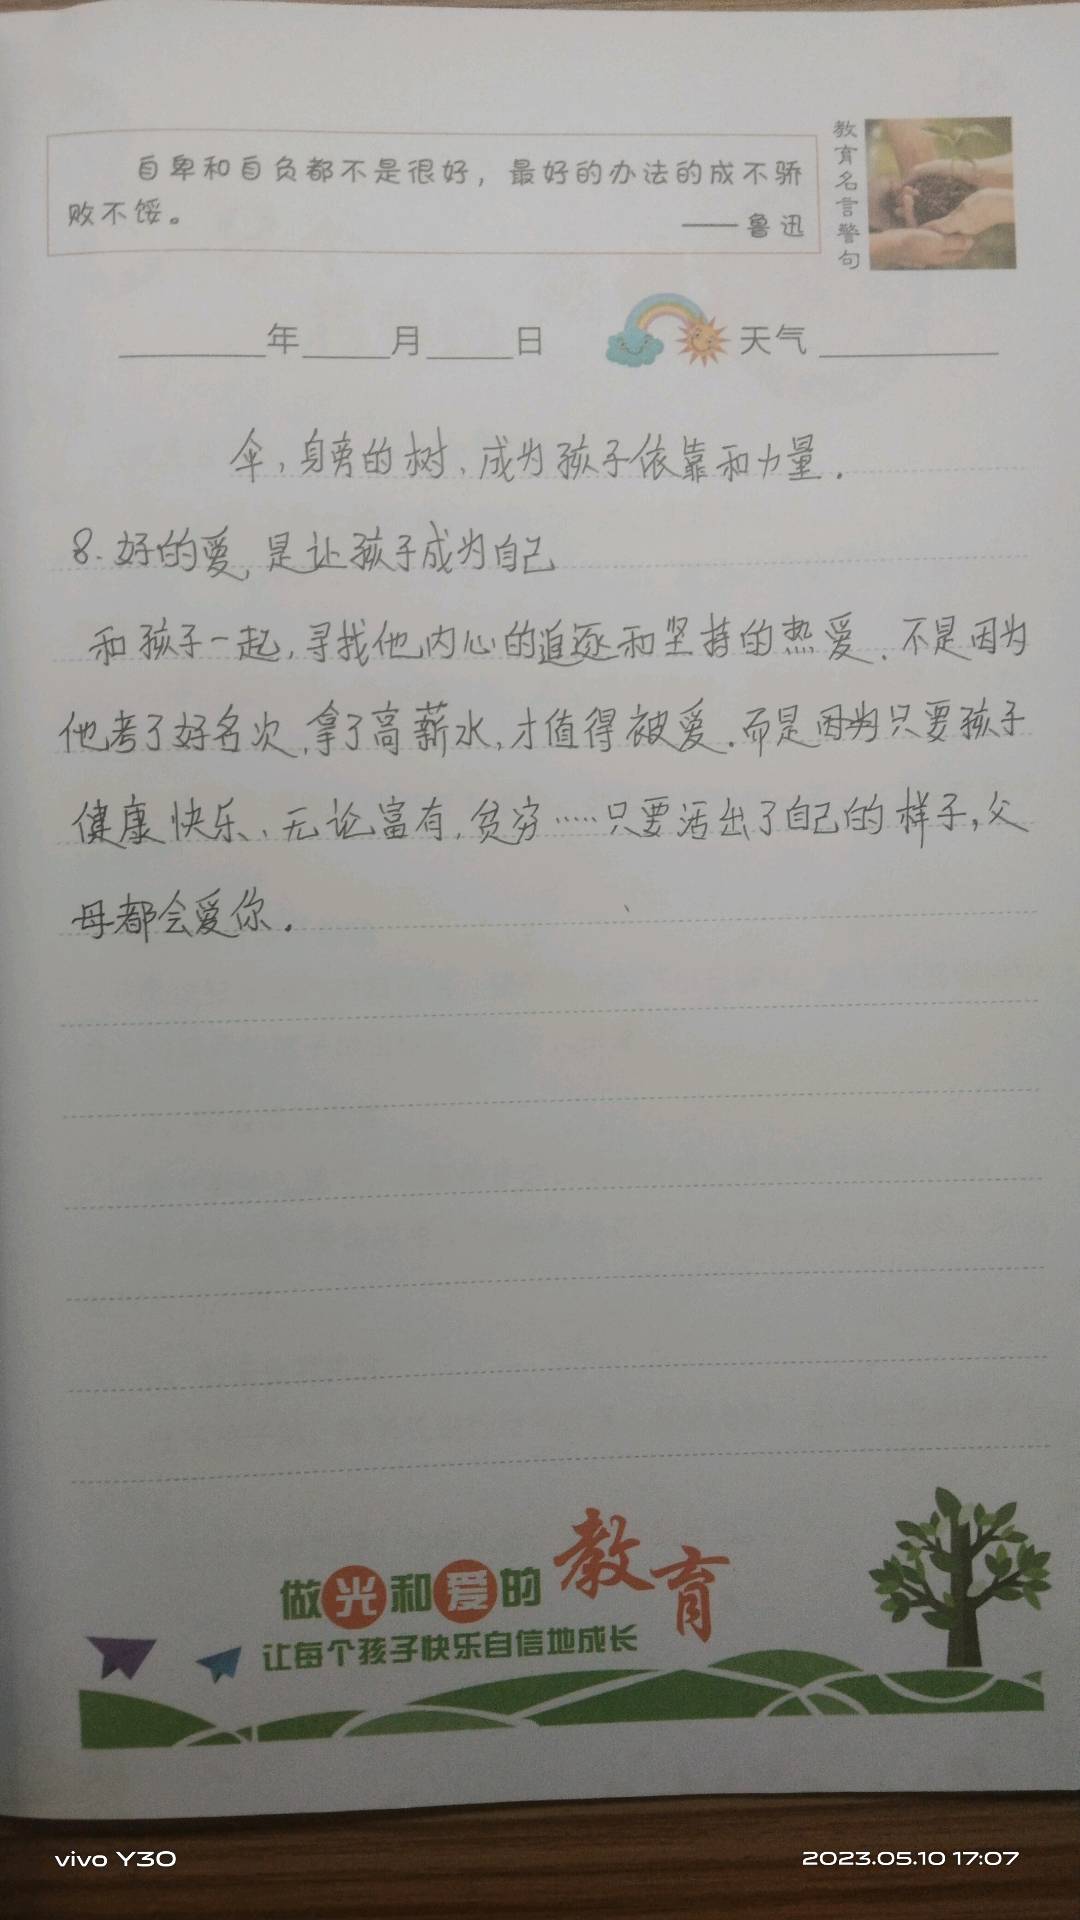 自卑和自负都不是很好，最好的办法的成不骄
败不馁。
——鲁迅
教育名言警句
年 月 日 天气
伞，身旁的树，成为孩子依靠和力量.
8.好的爱,是让孩子成为自己
和孩子一起,寻找他内心的追逐和坚持的热爱.不是因为
他考了好名次,拿了高薪水,才值得被爱.而是因为只要孩子
健康快乐、无论富有,贫穷……只要活出了自己的样子,父
母都会爱你.
做光和爱的教育
让每个孩子快乐自信地成长
vivo Y30
2023.05.10 17:07